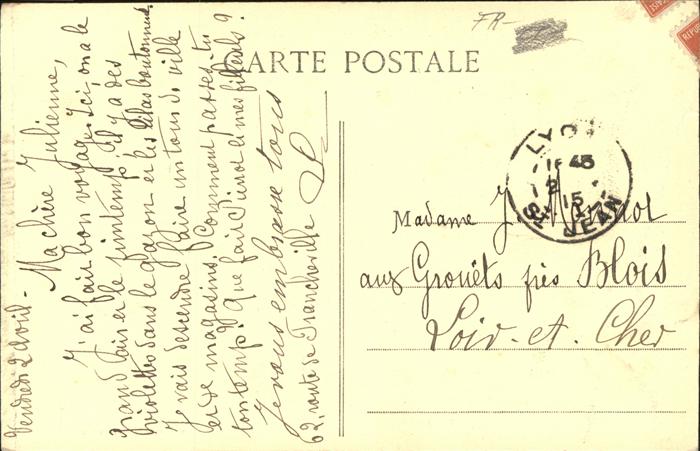 FR-
CARTE POSTALE
Vendredi 2 avril -
Ma chère Julienne,
J'ai fait bon voyage. Ici, on a le
grand air et le printemps, il y a des
violettes dans le gazon et les lilas boutonnent.
Je vais descendre faire un tour de ville
et de magasins. Comment passes-tu
ton temps? Que fait Pierrot et mes filleuls?
Je vous embrasse tous
62, route de Francheville
LYON
15
ST JEAN
Madame J.
aux Grouëts près Blois
Loir-et-Cher